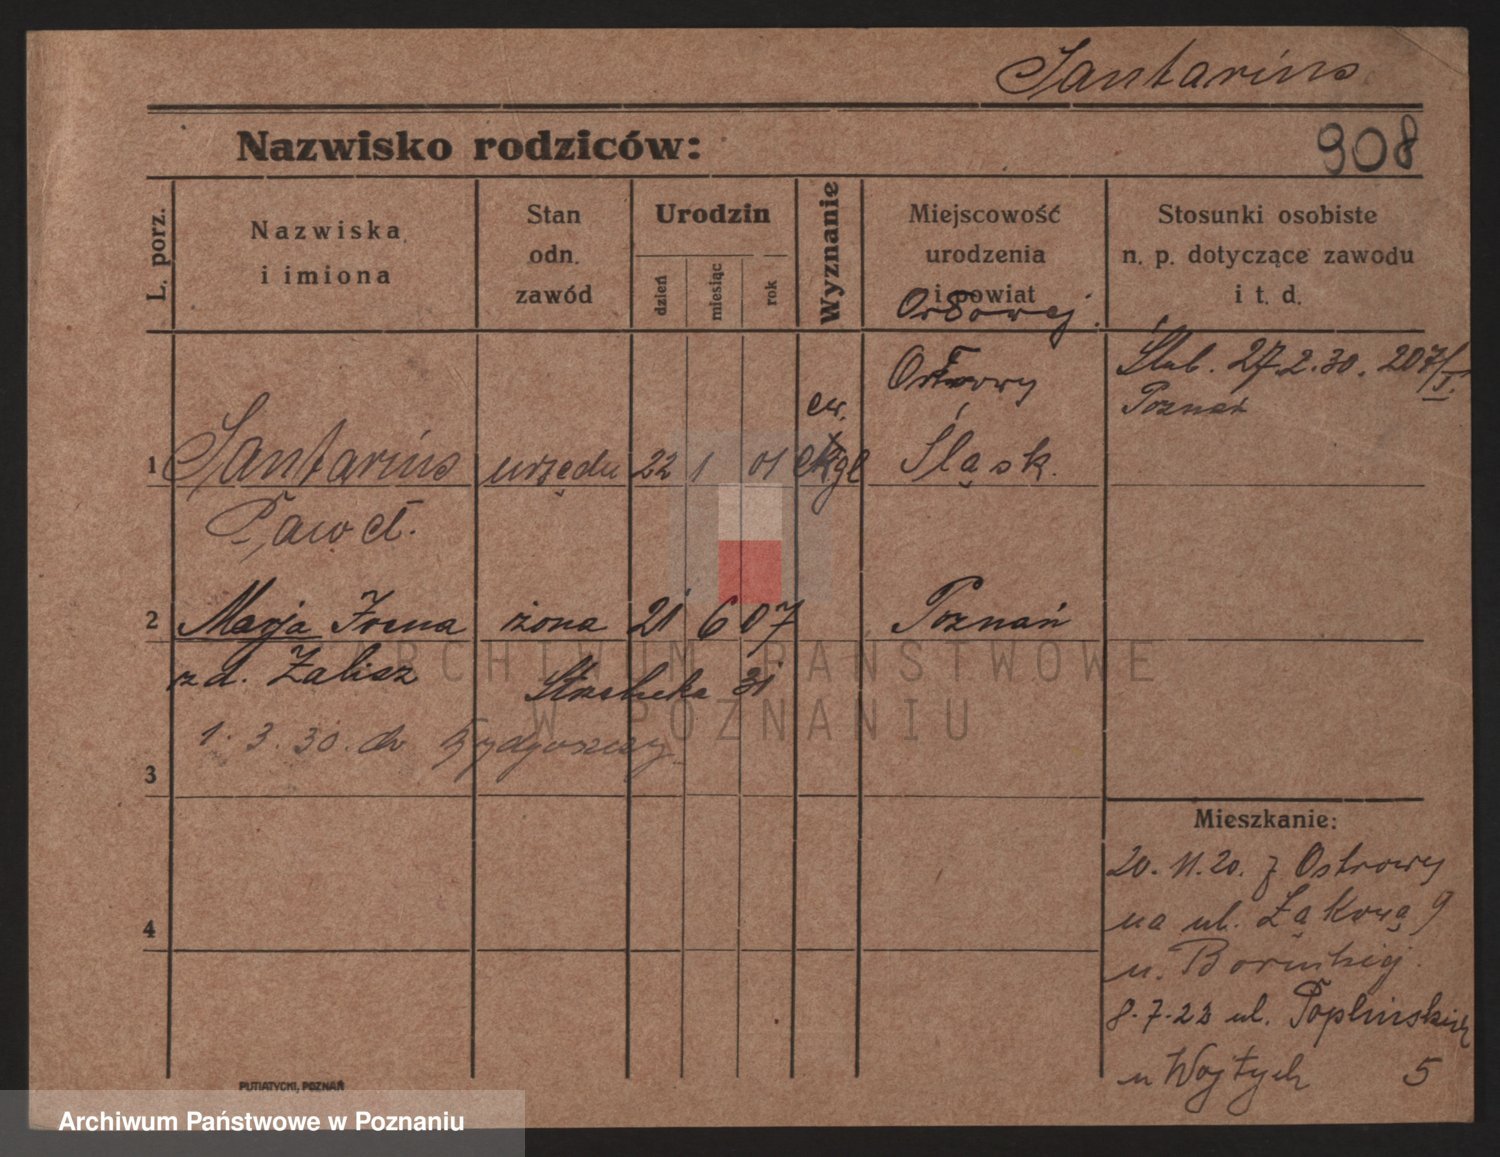 Santarius
Nazwisko rodziców:
908
L. porz.
Nazwiska
i imiona
Stan
odn.
zawód
Urodzin
dzień
miesiąc
rok
Wyznanie
Miejscowość
urodzenia
i powiat
Stosunki osobiste
n. p. dotyczące zawodu
i t. d.
Orłowej
Śląsk.
Ślub. 27.2.30. 207/I.
Poznań
ew.
1 Santarius urzędn 22 1 01
Paweł.
2 Marja Irena żona 21 6 07 Poznań
z d. Zalisz
31
1.3.30. do Bydgoszczy
3
4
Mieszkanie:
20.11.20. z Ostrowy
na ul. Łąkową 9
u.
8.7.23 ul. Toplinskich
u Wojtych 5
PUTIATYCKI, POZNAŃ
ARCHIWUM PAŃSTWOWE
W POZNANIU
Archiwum Państwowe w Poznaniu